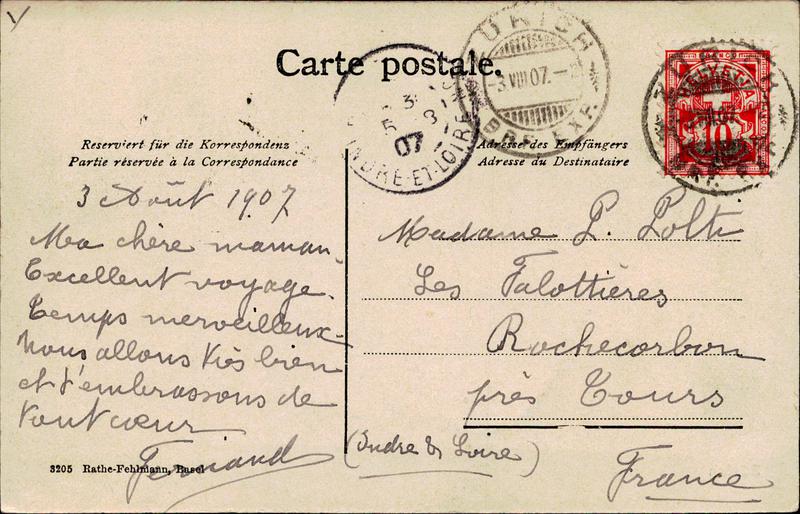 Carte postale.
ZÜRICH
3.VIII.07.
BRF. EXP.
5 8
07
INDRE-ET-LOIRE
HELVETIA
10
Reserviert für die Korrespondenz
Partie réservée à la Correspondance
Adresse des Empfängers
Adresse du Destinataire
3 Août 1907
Ma chère maman.
Excellent voyage.
Temps merveilleux.
Nous allons très bien
et t'embrassons de
tout cœur
Fernand
Madame P. Polti
Les Falottières
Rochecorbon
près Tours
(Indre & Loire)
France
3205 Rathe-Fehlmann, Basel